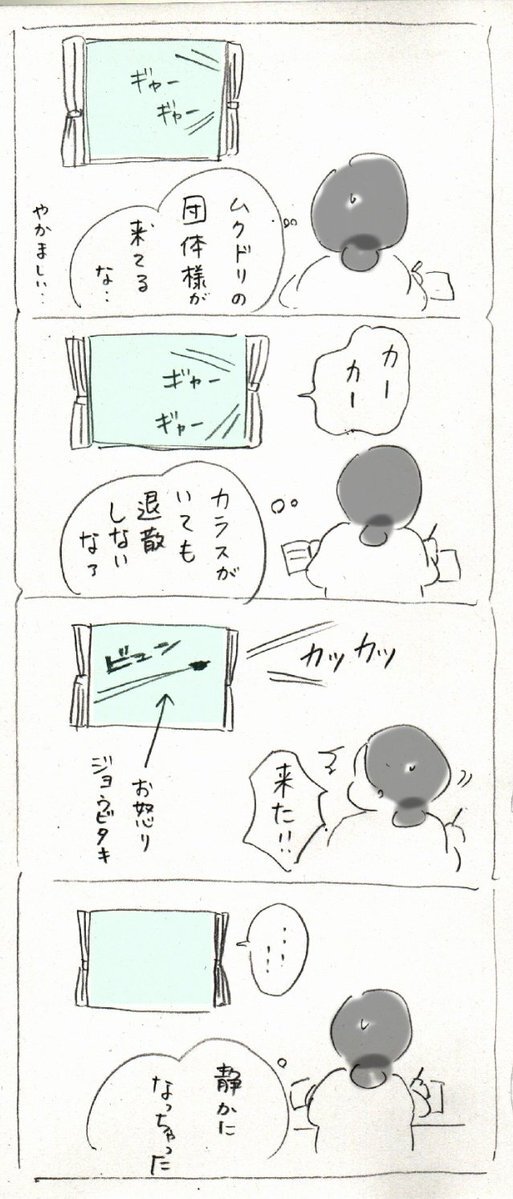 ギャー
ギャー
ムクドリの
団体様が
来てる
な‥
やかましい‥
カー
カー
ギャー
ギャー
カラスが
いても
退散
しない
なァ
カッカッ
ビュン
お怒り
ジョウビタキ
来た!!
……
静かに
なっちゃった